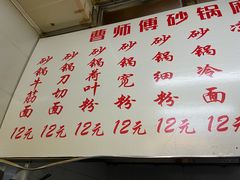 曹师傅砂锅
砂锅牛筋面
12元
砂锅刀切面
12元
砂锅荷叶粉
12元
砂锅宽粉
12元
砂锅细粉
12元
砂锅冷面
12元